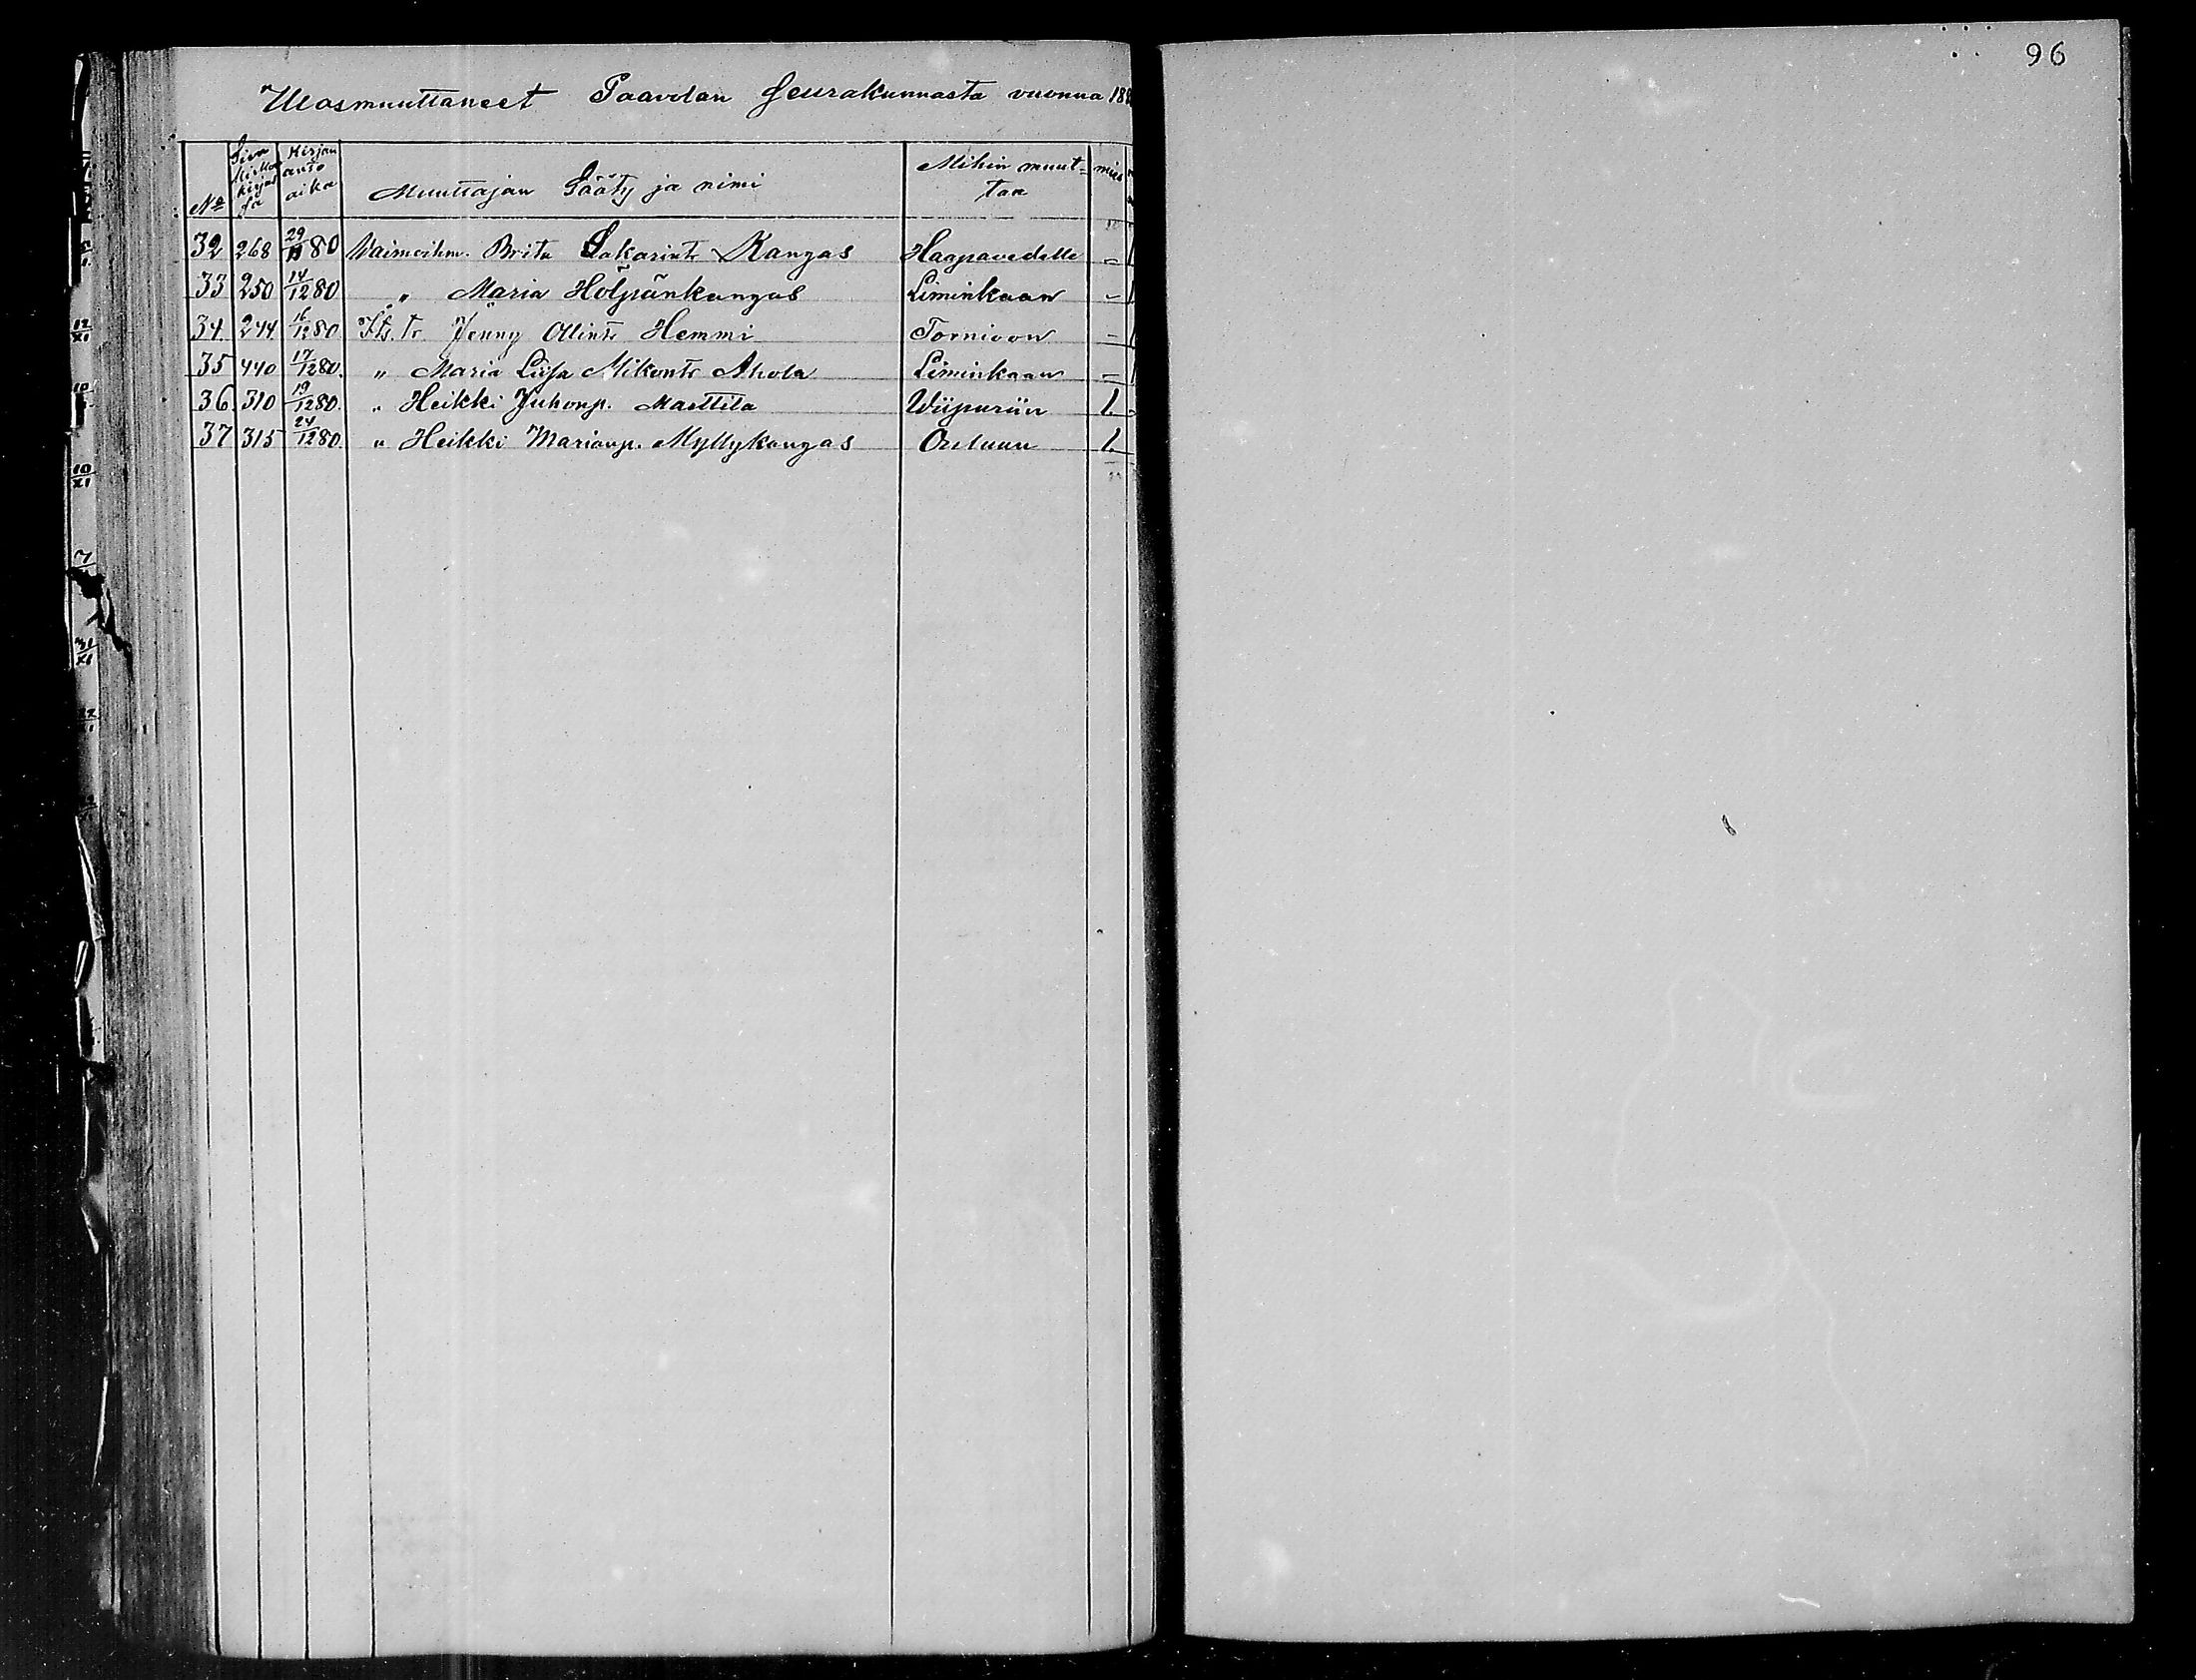 96
Ulosmuuttaneet Paavolan seurakunnasta vuonna 188
No Sivu kirjassa Kirjan anto aika Muuttajan Sääty ja nimi Mihin muuttaa mies
32 268 29/11 80 Vaimoihm. Brita Sakarintr Kangas Haapavedelle -
33 250 14/12 80 " Maria Höljänkangas Liminkaan -
34. 244. 16/12 80. Its. tr Jenny Ollintr Hemmi Tornioon -
35 440 17/12 80. " Maria Liisa Mikontr Ahola Liminkaan -
36. 310 19/12 80. " Heikki Juhonp. Marttila Wiipuriin 1.
37 315 24/12 80. " Heikki Marianp. Myllykangas Ouluun 1.